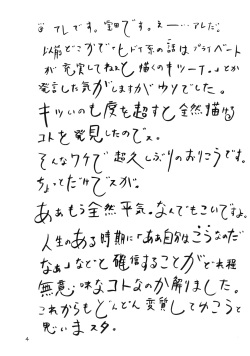 アレです。空田です。え———…アレだ。
以前どこかで「もドイ系の話はプライベート
が充実してねえと描くのキツーナ。」とか
発言した気がしますがウソでした。
キツいのも度を超すと全然描ける
コトを発見したのでス。
そんなワケで超久しぶりのおりこうです。
ちょってだけでスが。
あぁもう全然平気。なんでもこいですよ。
人生のある時期に「あぁ自分はこうなのだ
なぁ」などと確信することがどれ程
無意味なコトなのか解りました。
これからもどんどん変質してゆこうと
思いまスタ。
4